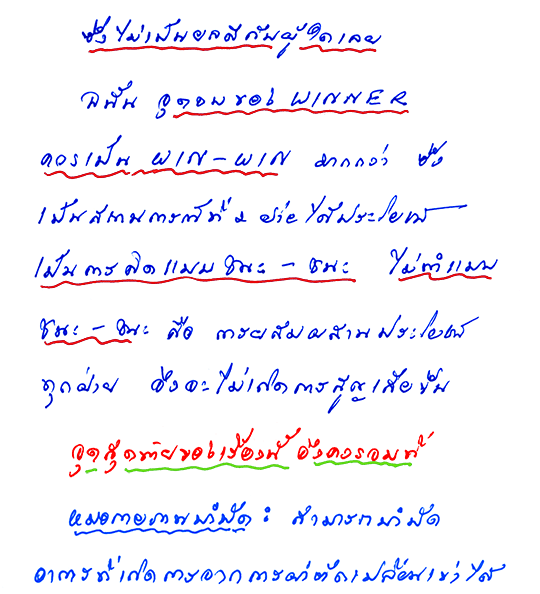 ซึ่งไม่เป็นผลดีกับผู้ใดเลย
ฉนั้น จุดจบของ WINNER
ควรเป็น WIN-WIN มากกว่า ซึ่ง
เป็นสถานการณ์ที่ 2 ฝ่ายได้ประโยชน์
เป็นการคิดแบบชนะ - ชนะ ไม่ทำแบบ
ชนะ - ชนะ คือ การผสมผสานประโยชน์
ทุกฝ่าย จึงจะไม่เกิดการสูญเสียขึ้น
จุดสุดท้ายของเรื่องนี้ จึงควรจบที่
หมอกายภาพบำบัด : สามารถบำบัด
อาการที่เกิดการจากการผ่าตัดเปลี่ยนเข่าได้